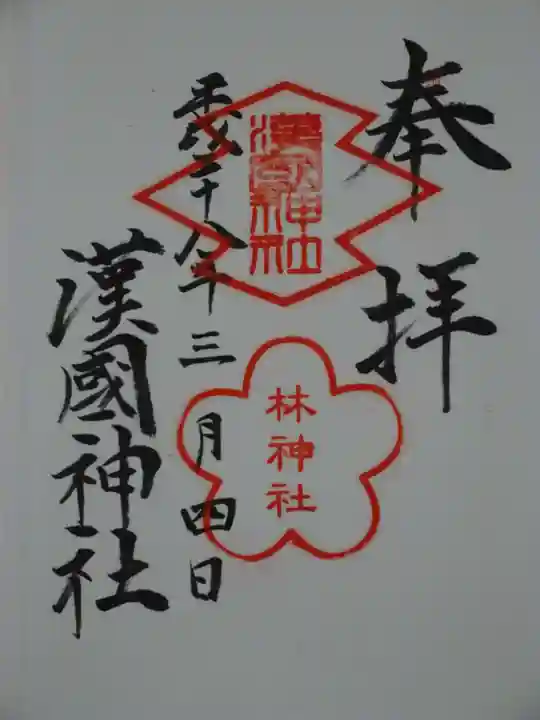 奉拝
漢國神社
林神社
平成二十八年三月四日
漢國神社